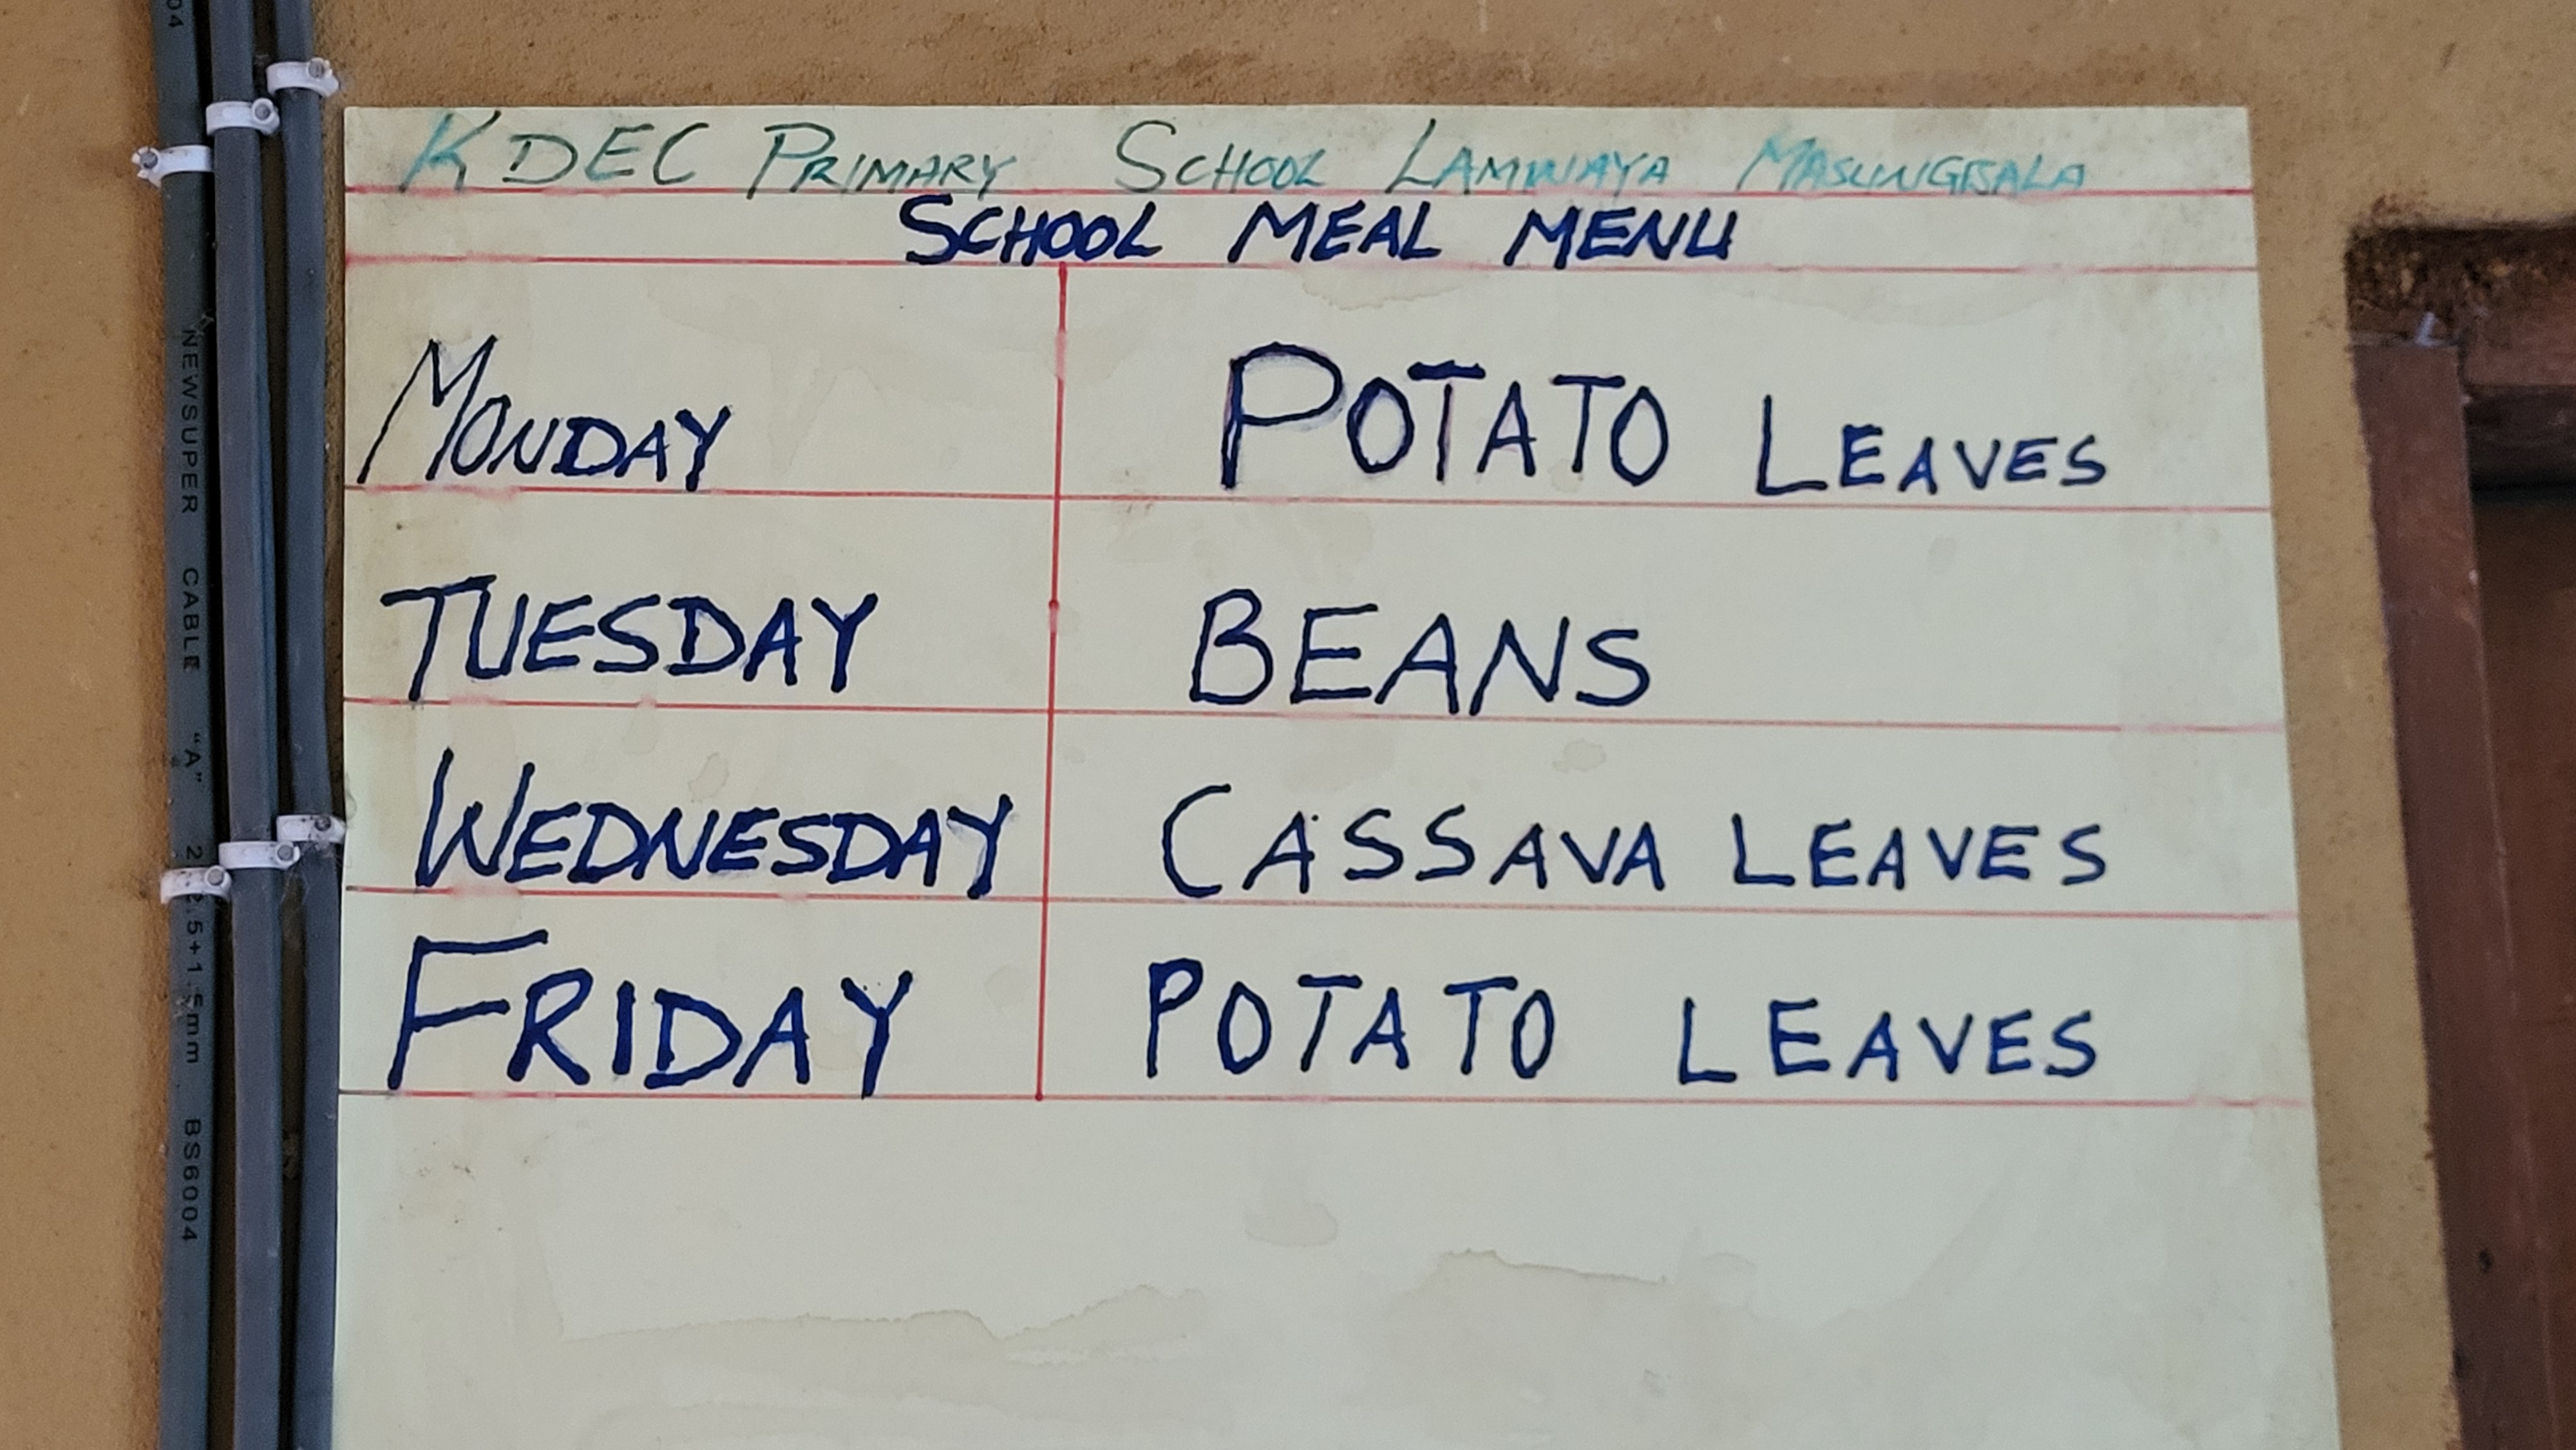 KDEC PRIMARY SCHOOL LAMWAYA MASUNGBALA
SCHOOL MEAL MENU
MONDAY POTATO LEAVES
TUESDAY BEANS
WEDNESDAY CASSAVA LEAVES
FRIDAY POTATO LEAVES
NEWSUPER CABLE "A" 2.5+1.5mm BS6004